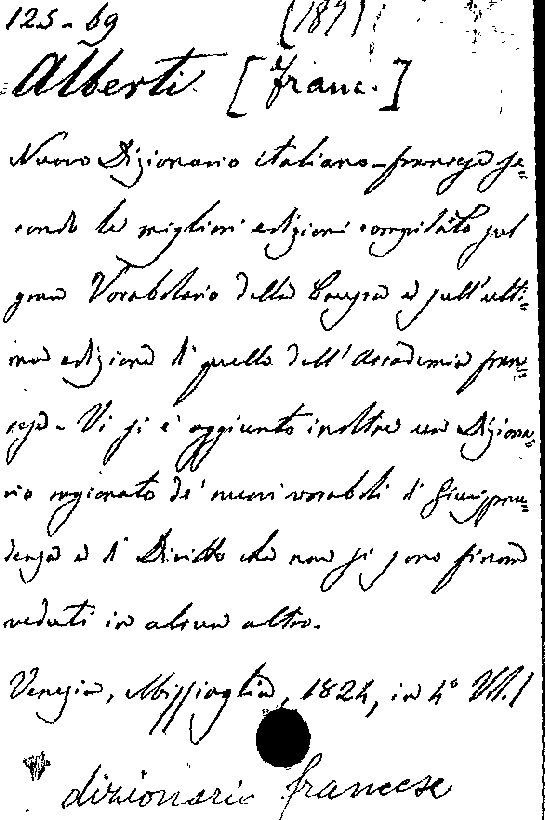 125-69
Alberti [Franc.]
Nuovo Dizionario italiano-francese se=
condo le migliori edizioni compilato sul
gran Vocabolario della Crusca e sull'ulti=
ma edizione di quello dell'Accademia fran=
cese. Vi si è aggiunto inoltre un Diziona=
rio ragionato de' nuovi vocaboli di Giurispru=
denza e di Diritto che non si sono finora
veduti in alcun altro.
Venezia, Missiaglia, 1824, in 4° Vll. 1
dizionario francese